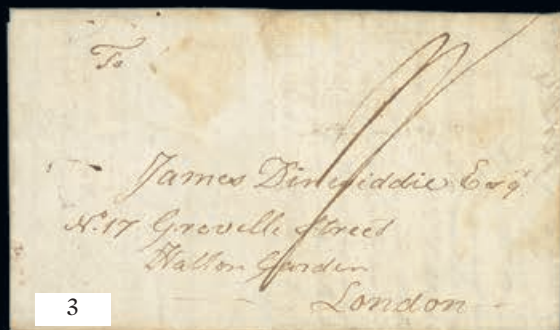 To
James Dinwiddie Esqr
No. 17 Greville Street
Hatton Garden
London
3